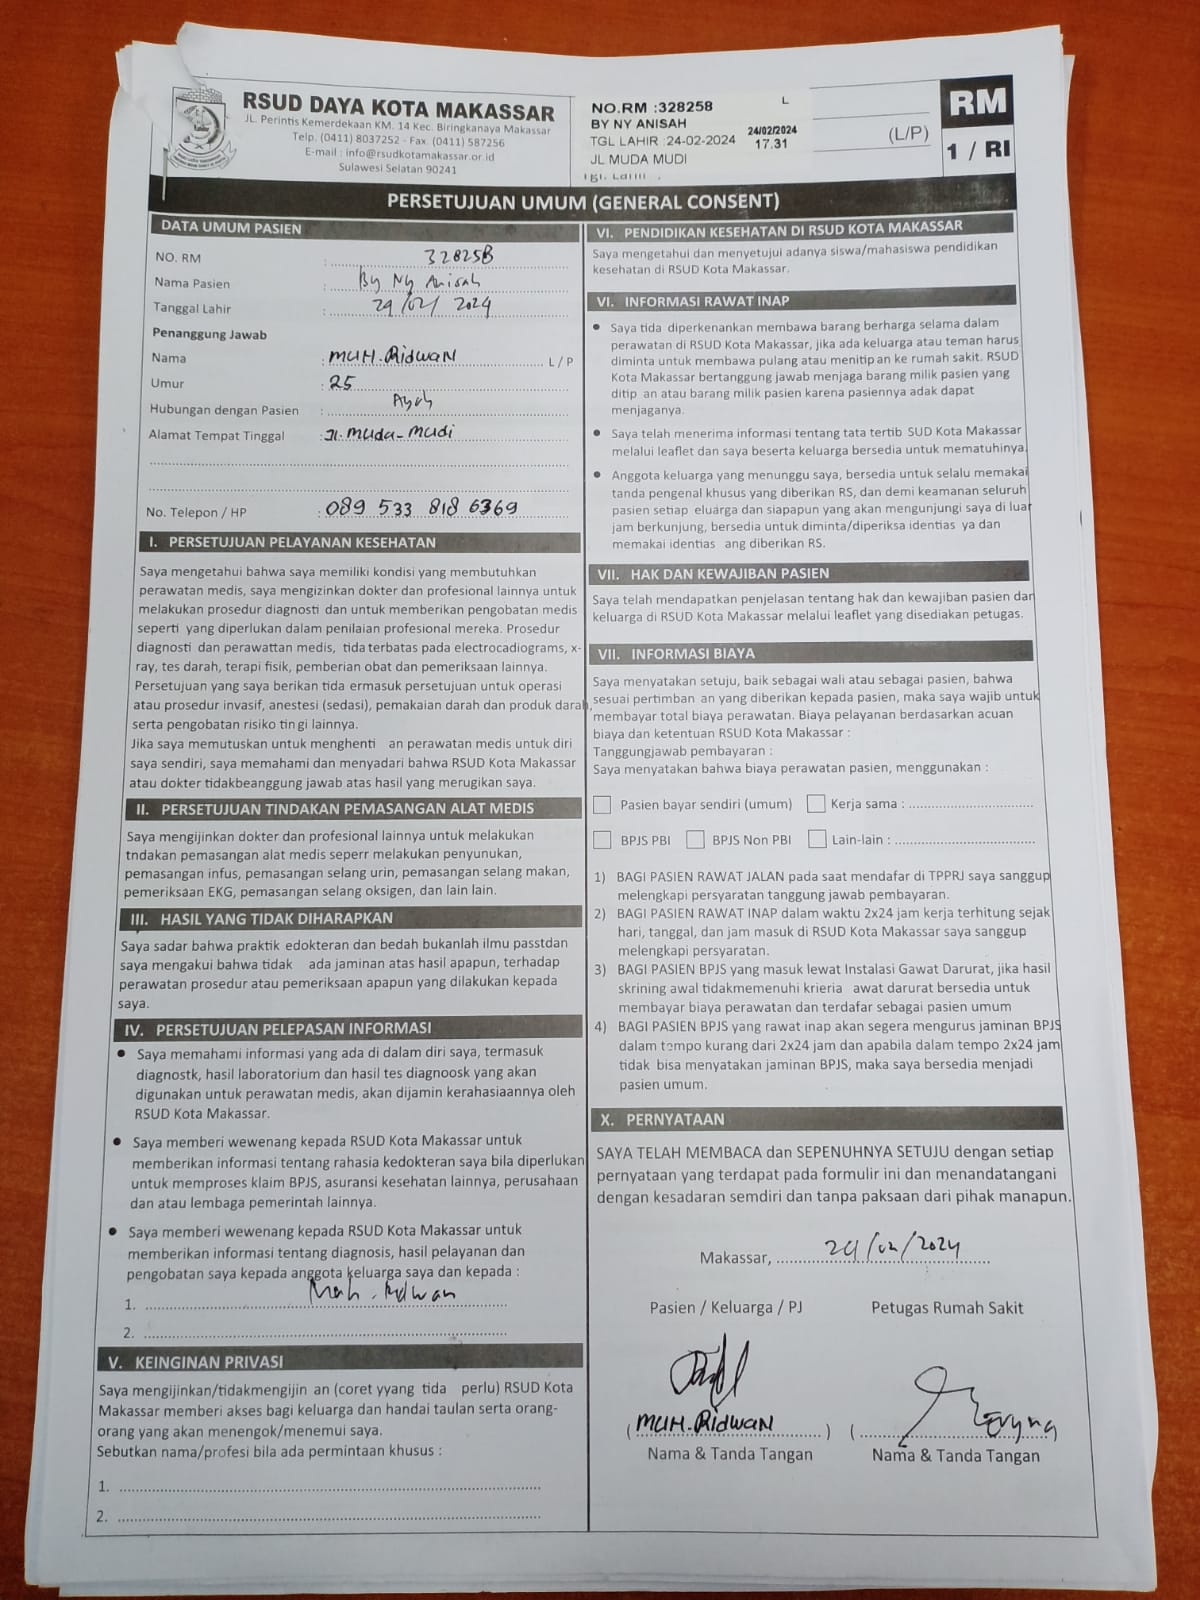 RSUD DAYA KOTA MAKASSAR
JL. Perintis Kemerdekaan KM. 14 Kec. Biringkanaya Makassar
Telp. (0411) 8037252 - Fax. (0411) 587256
E-mail : info@rsudkotamakassar.or.id
Sulawesi Selatan 90241
NO.RM :328258 L
BY NY ANISAH
TGL LAHIR :24-02-2024 24/02/2024 17.31
JL MUDA MUDI
(L/P)
RM
1 / RI
PERSETUJUAN UMUM (GENERAL CONSENT)
DATA UMUM PASIEN
NO. RM : 328258
Nama Pasien : By Ny Anisah
Tanggal Lahir : 24/02/2024
Penanggung Jawab
Nama : MUH. Ridwan L / P
Umur : 25
Hubungan dengan Pasien : Ayah
Alamat Tempat Tinggal : Jl. Muda-Mudi
No. Telepon / HP : 089 533 818 6369
I. PERSETUJUAN PELAYANAN KESEHATAN
Saya mengetahui bahwa saya memiliki kondisi yang membutuhkan
perawatan medis, saya mengizinkan dokter dan profesional lainnya untuk
melakukan prosedur diagnosti dan untuk memberikan pengobatan medis
seperti yang diperlukan dalam penilaian profesional mereka. Prosedur
diagnosti dan perawattan medis, tida terbatas pada electrocadiograms, x-
ray, tes darah, terapi fisik, pemberian obat dan pemeriksaan lainnya.
Persetujuan yang saya berikan tida ermasuk persetujuan untuk operasi
atau prosedur invasif, anestesi (sedasi), pemakaian darah dan produk darah,
serta pengobatan risiko tin gi lainnya.
Jika saya memutuskan untuk menghenti an perawatan medis untuk diri
saya sendiri, saya memahami dan menyadari bahwa RSUD Kota Makassar
atau dokter tidakbeanggung jawab atas hasil yang merugikan saya.
II. PERSETUJUAN TINDAKAN PEMASANGAN ALAT MEDIS
Saya mengijinkan dokter dan profesional lainnya untuk melakukan
tndakan pemasangan alat medis seperr melakukan penyunukan,
pemasangan infus, pemasangan selang urin, pemasangan selang makan,
pemeriksaan EKG, pemasangan selang oksigen, dan lain lain.
III. HASIL YANG TIDAK DIHARAPKAN
Saya sadar bahwa praktik edokteran dan bedah bukanlah ilmu passtdan
saya mengakui bahwa tidak ada jaminan atas hasil apapun, terhadap
perawatan prosedur atau pemeriksaan apapun yang dilakukan kepada
saya.
IV. PERSETUJUAN PELEPASAN INFORMASI
• Saya memahami informasi yang ada di dalam diri saya, termasuk
diagnostk, hasil laboratorium dan hasil tes diagnoosk yang akan
digunakan untuk perawatan medis, akan dijamin kerahasiaannya oleh
RSUD Kota Makassar.
• Saya memberi wewenang kepada RSUD Kota Makassar untuk
memberikan informasi tentang rahasia kedokteran saya bila diperlukan
untuk memproses klaim BPJS, asuransi kesehatan lainnya, perusahaan
dan atau lembaga pemerintah lainnya.
• Saya memberi wewenang kepada RSUD Kota Makassar untuk
memberikan informasi tentang diagnosis, hasil pelayanan dan
pengobatan saya kepada anggota keluarga saya dan kepada :
1. Muh. Ridwan
2.
V. KEINGINAN PRIVASI
Saya mengijinkan/tidakmengijin an (coret yyang tida perlu) RSUD Kota
Makassar memberi akses bagi keluarga dan handai taulan serta orang-
orang yang akan menengok/menemui saya.
Sebutkan nama/profesi bila ada permintaan khusus :
1.
2.
VI. PENDIDIKAN KESEHATAN DI RSUD KOTA MAKASSAR
Saya mengetahui dan menyetujui adanya siswa/mahasiswa pendidikan
kesehatan di RSUD Kota Makassar.
VI. INFORMASI RAWAT INAP
• Saya tida diperkenankan membawa barang berharga selama dalam
perawatan di RSUD Kota Makassar, jika ada keluarga atau teman harus
diminta untuk membawa pulang atau menitip an ke rumah sakit. RSUD
Kota Makassar bertanggung jawab menjaga barang milik pasien yang
ditip an atau barang milik pasien karena pasiennya adak dapat
menjaganya.
• Saya telah menerima informasi tentang tata tertib SUD Kota Makassar
melalui leaflet dan saya beserta keluarga bersedia untuk mematuhinya.
• Anggota keluarga yang menunggu saya, bersedia untuk selalu memakai
tanda pengenal khusus yang diberikan RS, dan demi keamanan seluruh
pasien setiap eluarga dan siapapun yang akan mengunjungi saya di luar
jam berkunjung, bersedia untuk diminta/diperiksa identias ya dan
memakai identias ang diberikan RS.
VII. HAK DAN KEWAJIBAN PASIEN
Saya telah mendapatkan penjelasan tentang hak dan kewajiban pasien dan
keluarga di RSUD Kota Makassar melalui leaflet yang disediakan petugas.
VII. INFORMASI BIAYA
Saya menyatakan setuju, baik sebagai wali atau sebagai pasien, bahwa
sesuai pertimban an yang diberikan kepada pasien, maka saya wajib untuk
membayar total biaya perawatan. Biaya pelayanan berdasarkan acuan
biaya dan ketentuan RSUD Kota Makassar :
Tanggungjawab pembayaran :
Saya menyatakan bahwa biaya perawatan pasien, menggunakan :
Pasien bayar sendiri (umum) Kerja sama :
BPJS PBI BPJS Non PBI Lain-lain :
1) BAGI PASIEN RAWAT JALAN pada saat mendafar di TPPRJ saya sanggup
melengkapi persyaratan tanggung jawab pembayaran.
2) BAGI PASIEN RAWAT INAP dalam waktu 2x24 jam kerja terhitung sejak
hari, tanggal, dan jam masuk di RSUD Kota Makassar saya sanggup
melengkapi persyaratan.
3) BAGI PASIEN BPJS yang masuk lewat Instalasi Gawat Darurat, jika hasil
skrining awal tidakmemenuhi krieria awat darurat bersedia untuk
membayar biaya perawatan dan terdafar sebagai pasien umum
4) BAGI PASIEN BPJS yang rawat inap akan segera mengurus jaminan BPJS
dalam tempo kurang dari 2x24 jam dan apabila dalam tempo 2x24 jam
tidak bisa menyatakan jaminan BPJS, maka saya bersedia menjadi
pasien umum.
X. PERNYATAAN
SAYA TELAH MEMBACA dan SEPENUHNYA SETUJU dengan setiap
pernyataan yang terdapat pada formulir ini dan menandatangani
dengan kesadaran semdiri dan tanpa paksaan dari pihak manapun.
Makassar, 24/02/2024
Pasien / Keluarga / PJ Petugas Rumah Sakit
( MUH. Ridwan ) ( )
Nama & Tanda Tangan Nama & Tanda Tangan